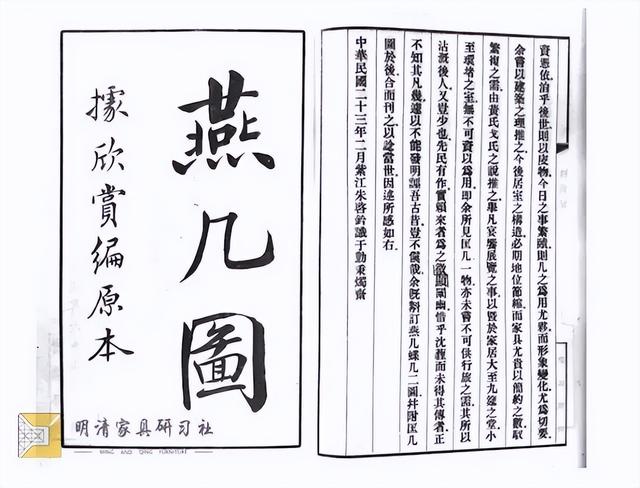 資憑依洎乎後世則以庋物今日之事繁賾則几之爲用尤夥而形象變化尤爲切要
余嘗以建築之理推之今後居室之構造必期地位節縮而家具尤貴以簡約之數馭
繁複之需由黃氏戈氏之說推之舉凡宴饗展覽之事以曁於家居大至九筵之堂小
至環堵之室無不可資以爲用即余所見匡几一物亦未嘗不可供行旅之需其所以
沾漑後人又豈少也先民有作實賴來者爲之微顯闡幽惜乎沈薶而未得其傳者正
不知其凡幾遽以不能發明誣吾古昔豈不傎哉余旣斠訂燕几蝶几二圖幷附匡几
圖於後合而刊之以諗當世因述所感如右
中華民國二十三年二月紫江朱啓鈐識于勤秉燭齋
燕几圖
據欣賞編原本
明清家具研习社
MING AND QING FURNITURE